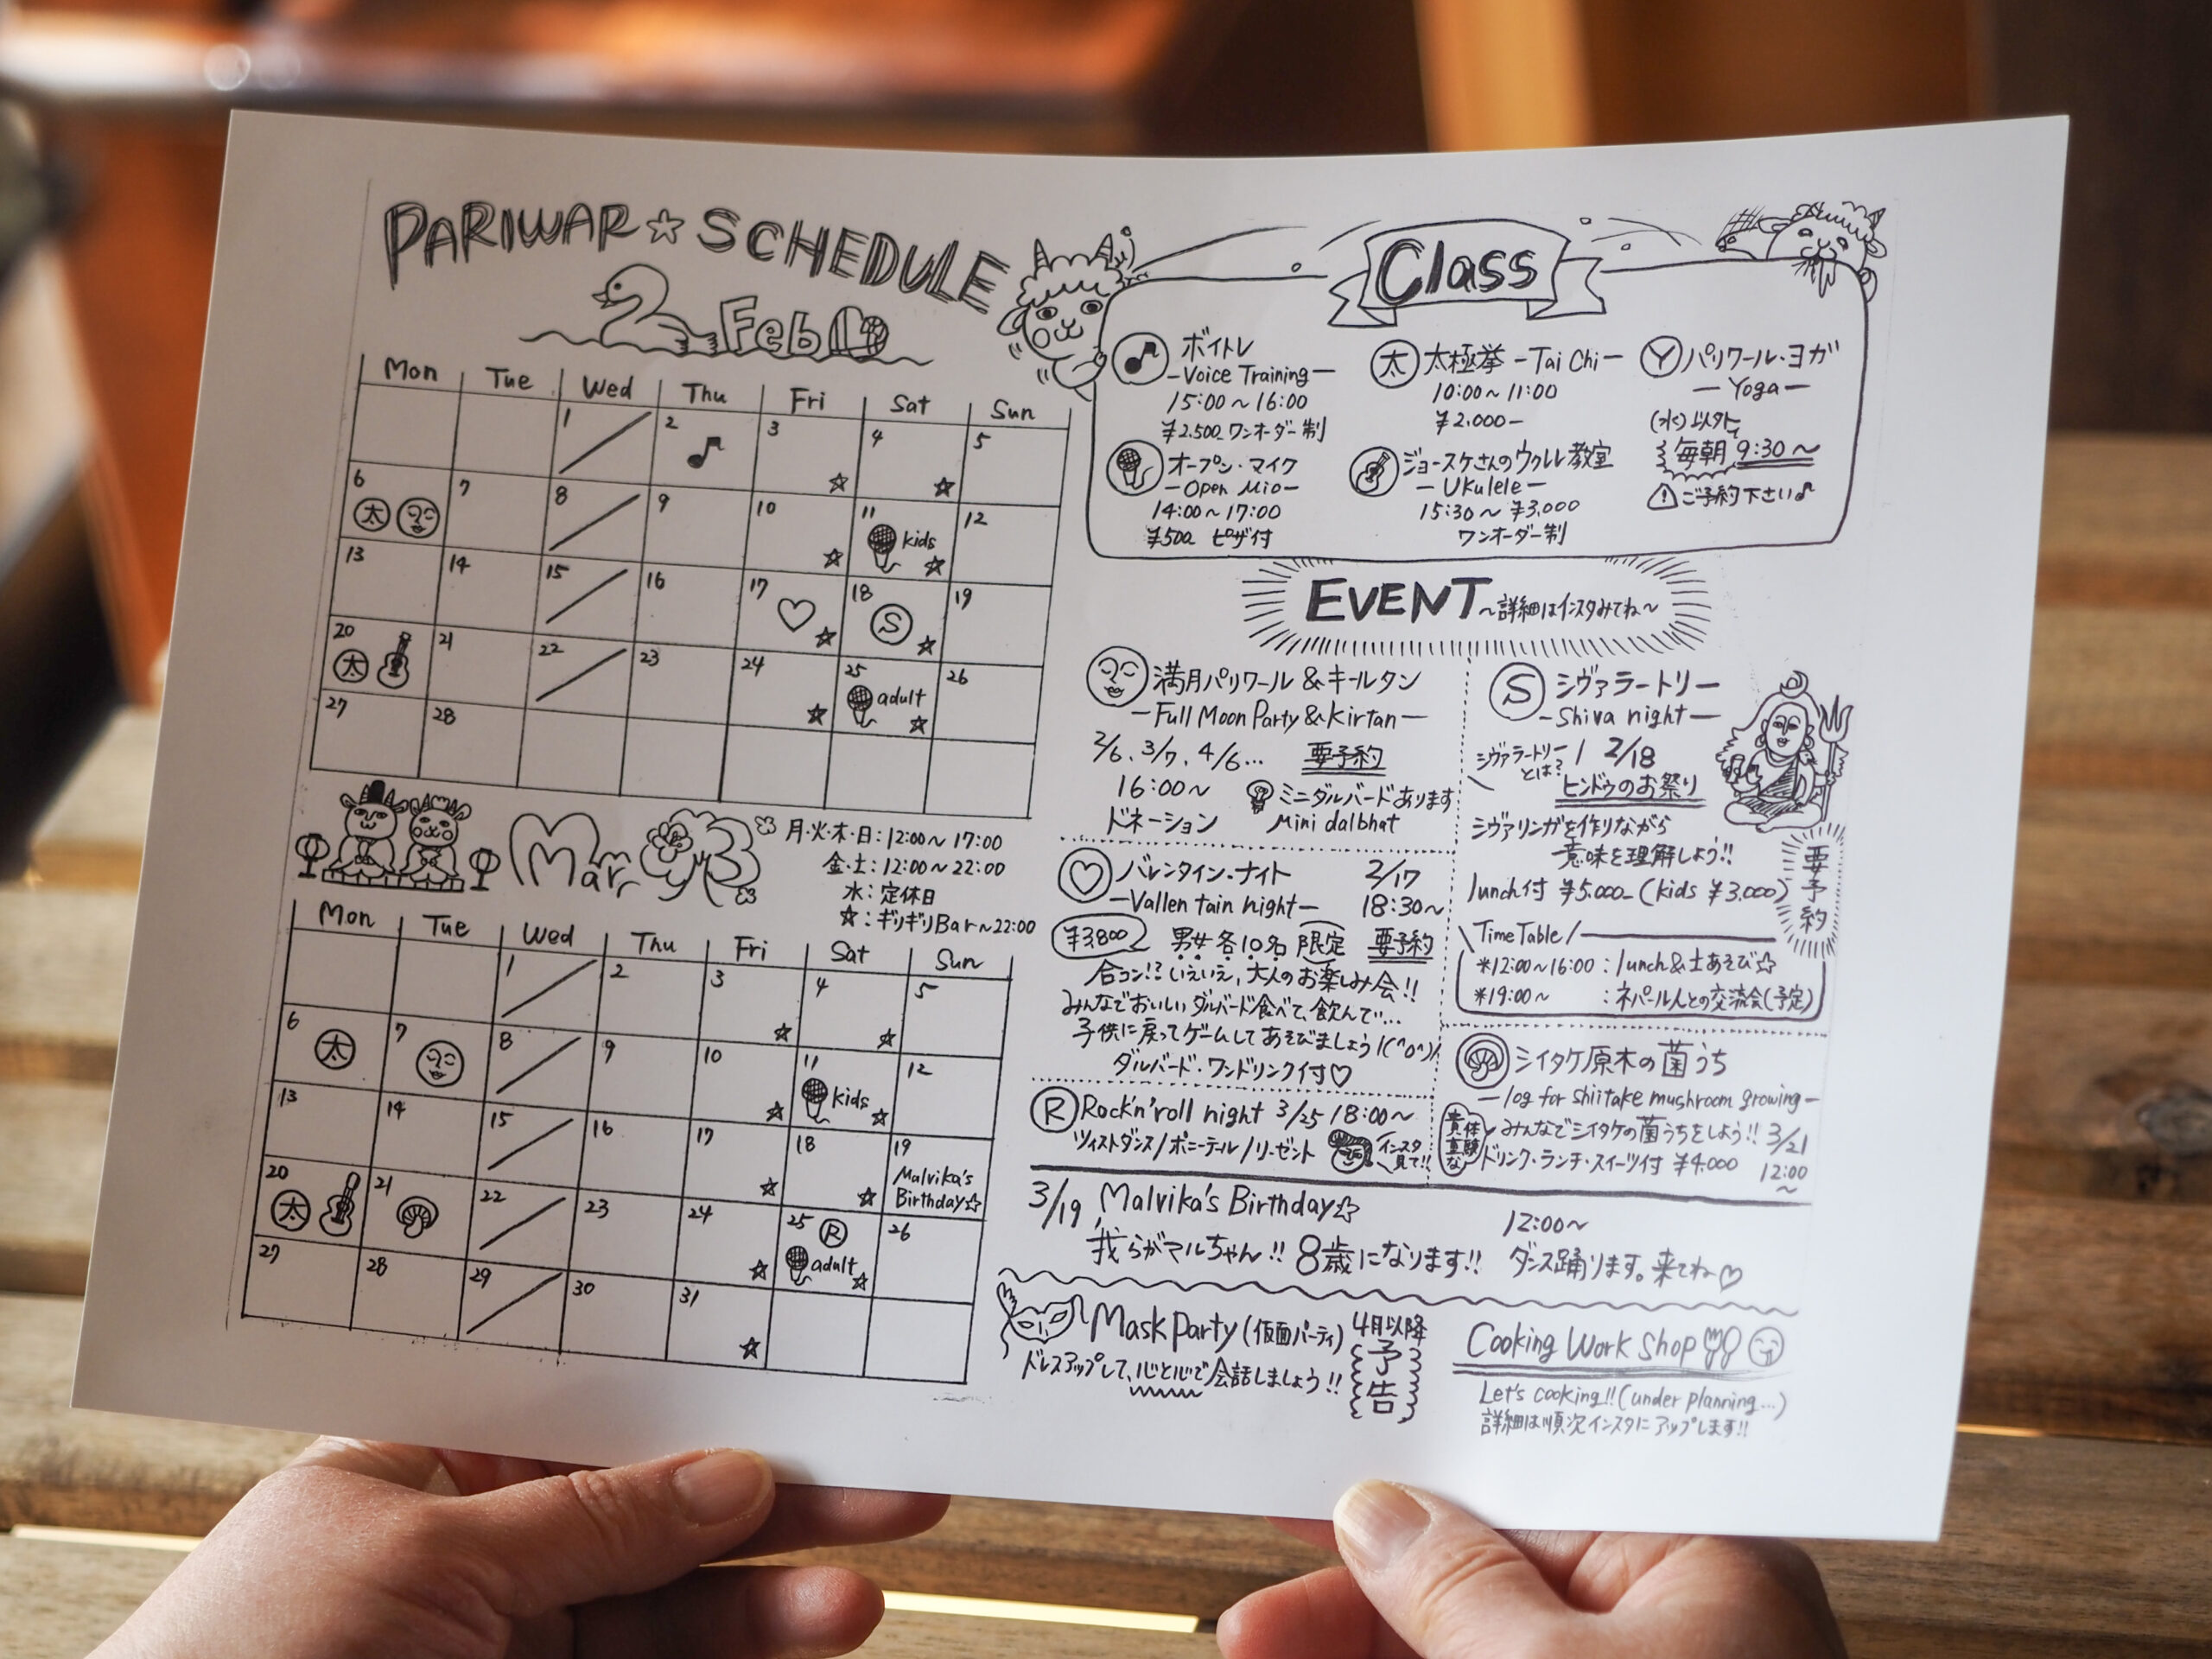 PARIWAR☆SCHEDULE
2 Feb
Mon Tue Wed Thu Fri Sat Sun
1 2 3 ☆ 4 ☆ 5
6 太 7 8 9 10 ☆ 11 kids ☆ 12
13 14 15 16 17 ♡ ☆ 18 S ☆ 19
20 太 21 22 23 24 ☆ 25 adult ☆ 26
27 28
Mar 3
月・火・木・日:12:00〜17:00
金・土:12:00〜22:00
水:定休日
☆:ギリギリBar〜22:00
Mon Tue Wed Thu Fri Sat Sun
1 2 3 ☆ 4 ☆ 5
6 太 7 8 9 10 ☆ 11 kids ☆ 12
13 14 15 16 17 ☆ 18 ☆ 19 Malvika's
Birthday☆
20 太 21 22 23 24 ☆ 25 R adult ☆ 26
27 28 29 30 31 ☆
Class
♪ ボイトレ
-Voice Training-
15:00〜16:00
¥2.500_ワンオーダー制
オープン・マイク
-Open Mic-
14:00〜17:00
¥500_ピザ付
太 太極拳 -Tai Chi-
10:00〜11:00
¥2.000-
ジョースケさんのウクレレ教室
-Ukulele-
15:30〜 ¥3,000
ワンオーダー制
Y パリワール・ヨガ
-Yoga-
(水)以外
毎朝 9:30〜
ご予約下さい♪
EVENT 〜詳細はインスタみてね〜
満月パリワール&キールタン
-Full Moon Party & Kirtan-
2/6、3/7、4/6… 要予約
16:00〜 ミニダルバードあります
ドネーション Mini dalbhat
♡ バレンタイン・ナイト 2/17
-Vallen tain night- 18:30〜
¥3800 男女各10名 限定 要予約
合コン!?いえいえ、大人のお楽しみ会!!
みんなでおいしいダルバード食べて、飲んで…
子供に戻ってゲームしてあそびましょう!(^o^)/
ダルバード・ワンドリンク付♡
R Rock'n'roll night 3/25 18:00〜
ツイストダンス/ポニーテール/リーゼント インスタ
見て!!
S シヴァラートリー
-Shiva night-
シヴァラートリー
とは? 2/18
ヒンドゥのお祭り
シヴァリンガを作りながら
意味を理解しよう!!
lunch付 ¥5.000_(kids ¥3.000)
要予約
Time Table
*12:00〜16:00:lunch&土あそび☆
*19:00〜 :ネパール人との交流会(予定)
シイタケ原木の菌うち
-log for shiitake mushroom growing-
貴重な体験
みんなでシイタケの菌うちをしよう!! 3/21
ドリンク・ランチ・スイーツ付 ¥4.000 12:00
〜
3/19 Malvika's Birthday☆ 12:00〜
我らがマルちゃん!! 8歳になります!! ダンス踊ります。来てね♡
Mask Party(仮面パーティ) 4月以降
予告
ドレスアップして、心と心で会話しましょう!!
Cooking Work Shop
Let's cooking!!(under planning...)
詳細は順次インスタにアップします!!